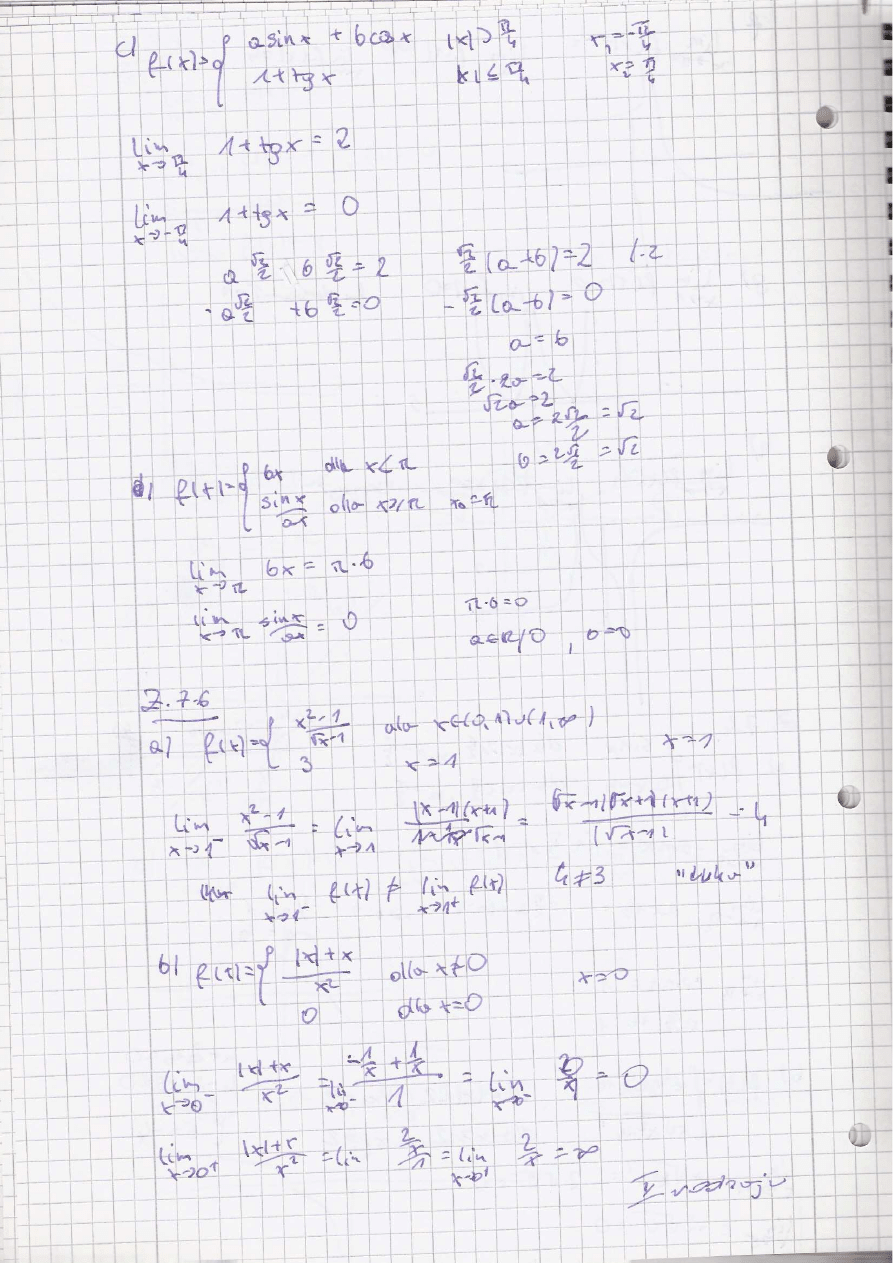 c) f(x)={ a sinx + b cosx |x|>π/4 x₁=-π/4
1+tgx |x|≤π/4 x₂=π/4
lim x→π/4 1+tgx = 2
lim x→-π/4 1+tgx = 0
a √2/2 b √2/2 = 2 √2/2 (a+b)=2 /·2
-a √2/2 +b √2/2 = 0 -√2/2 (a-b)=0
a=b
√2/2 · 2a=2
√2a=2
a= 2√2/2 = √2
b= 2√2/2 = √2
d) f(x)={ bx dla x<π
sinx/ax dla x≥π x₀=π
lim x→π bx = π·b
lim x→π sinx/ax = 0 π·b=0
a∈R/0 , b=0
Z.7.6
a) f(x)={ x²-1/√x-1 dla x∈(0,1)∪(1,∞) x=1
3 x=1
lim x→1⁻ x²-1/√x-1 = lim x→1 (x-1)(x+1)/√x-1 = (√x-1)(√x+1)(x+1)/(√x-1) = 4
lim x→1⁻ f(x) ≠ lim x→1⁺ f(x) 4≠3 "luka"
b) f(x)={ |x|+x/x² dla x≠0 x=0
0 dla x=0
lim x→0⁻ |x|+x/x² = lim x→0⁻ -1/x + 1/x / 1 = lim x→0⁻ 0/x = 0
lim x→0⁺ |x|+x/x² = lim 2/x / 1 = lim x→0⁺ 2/x = ∞
II rodzaju